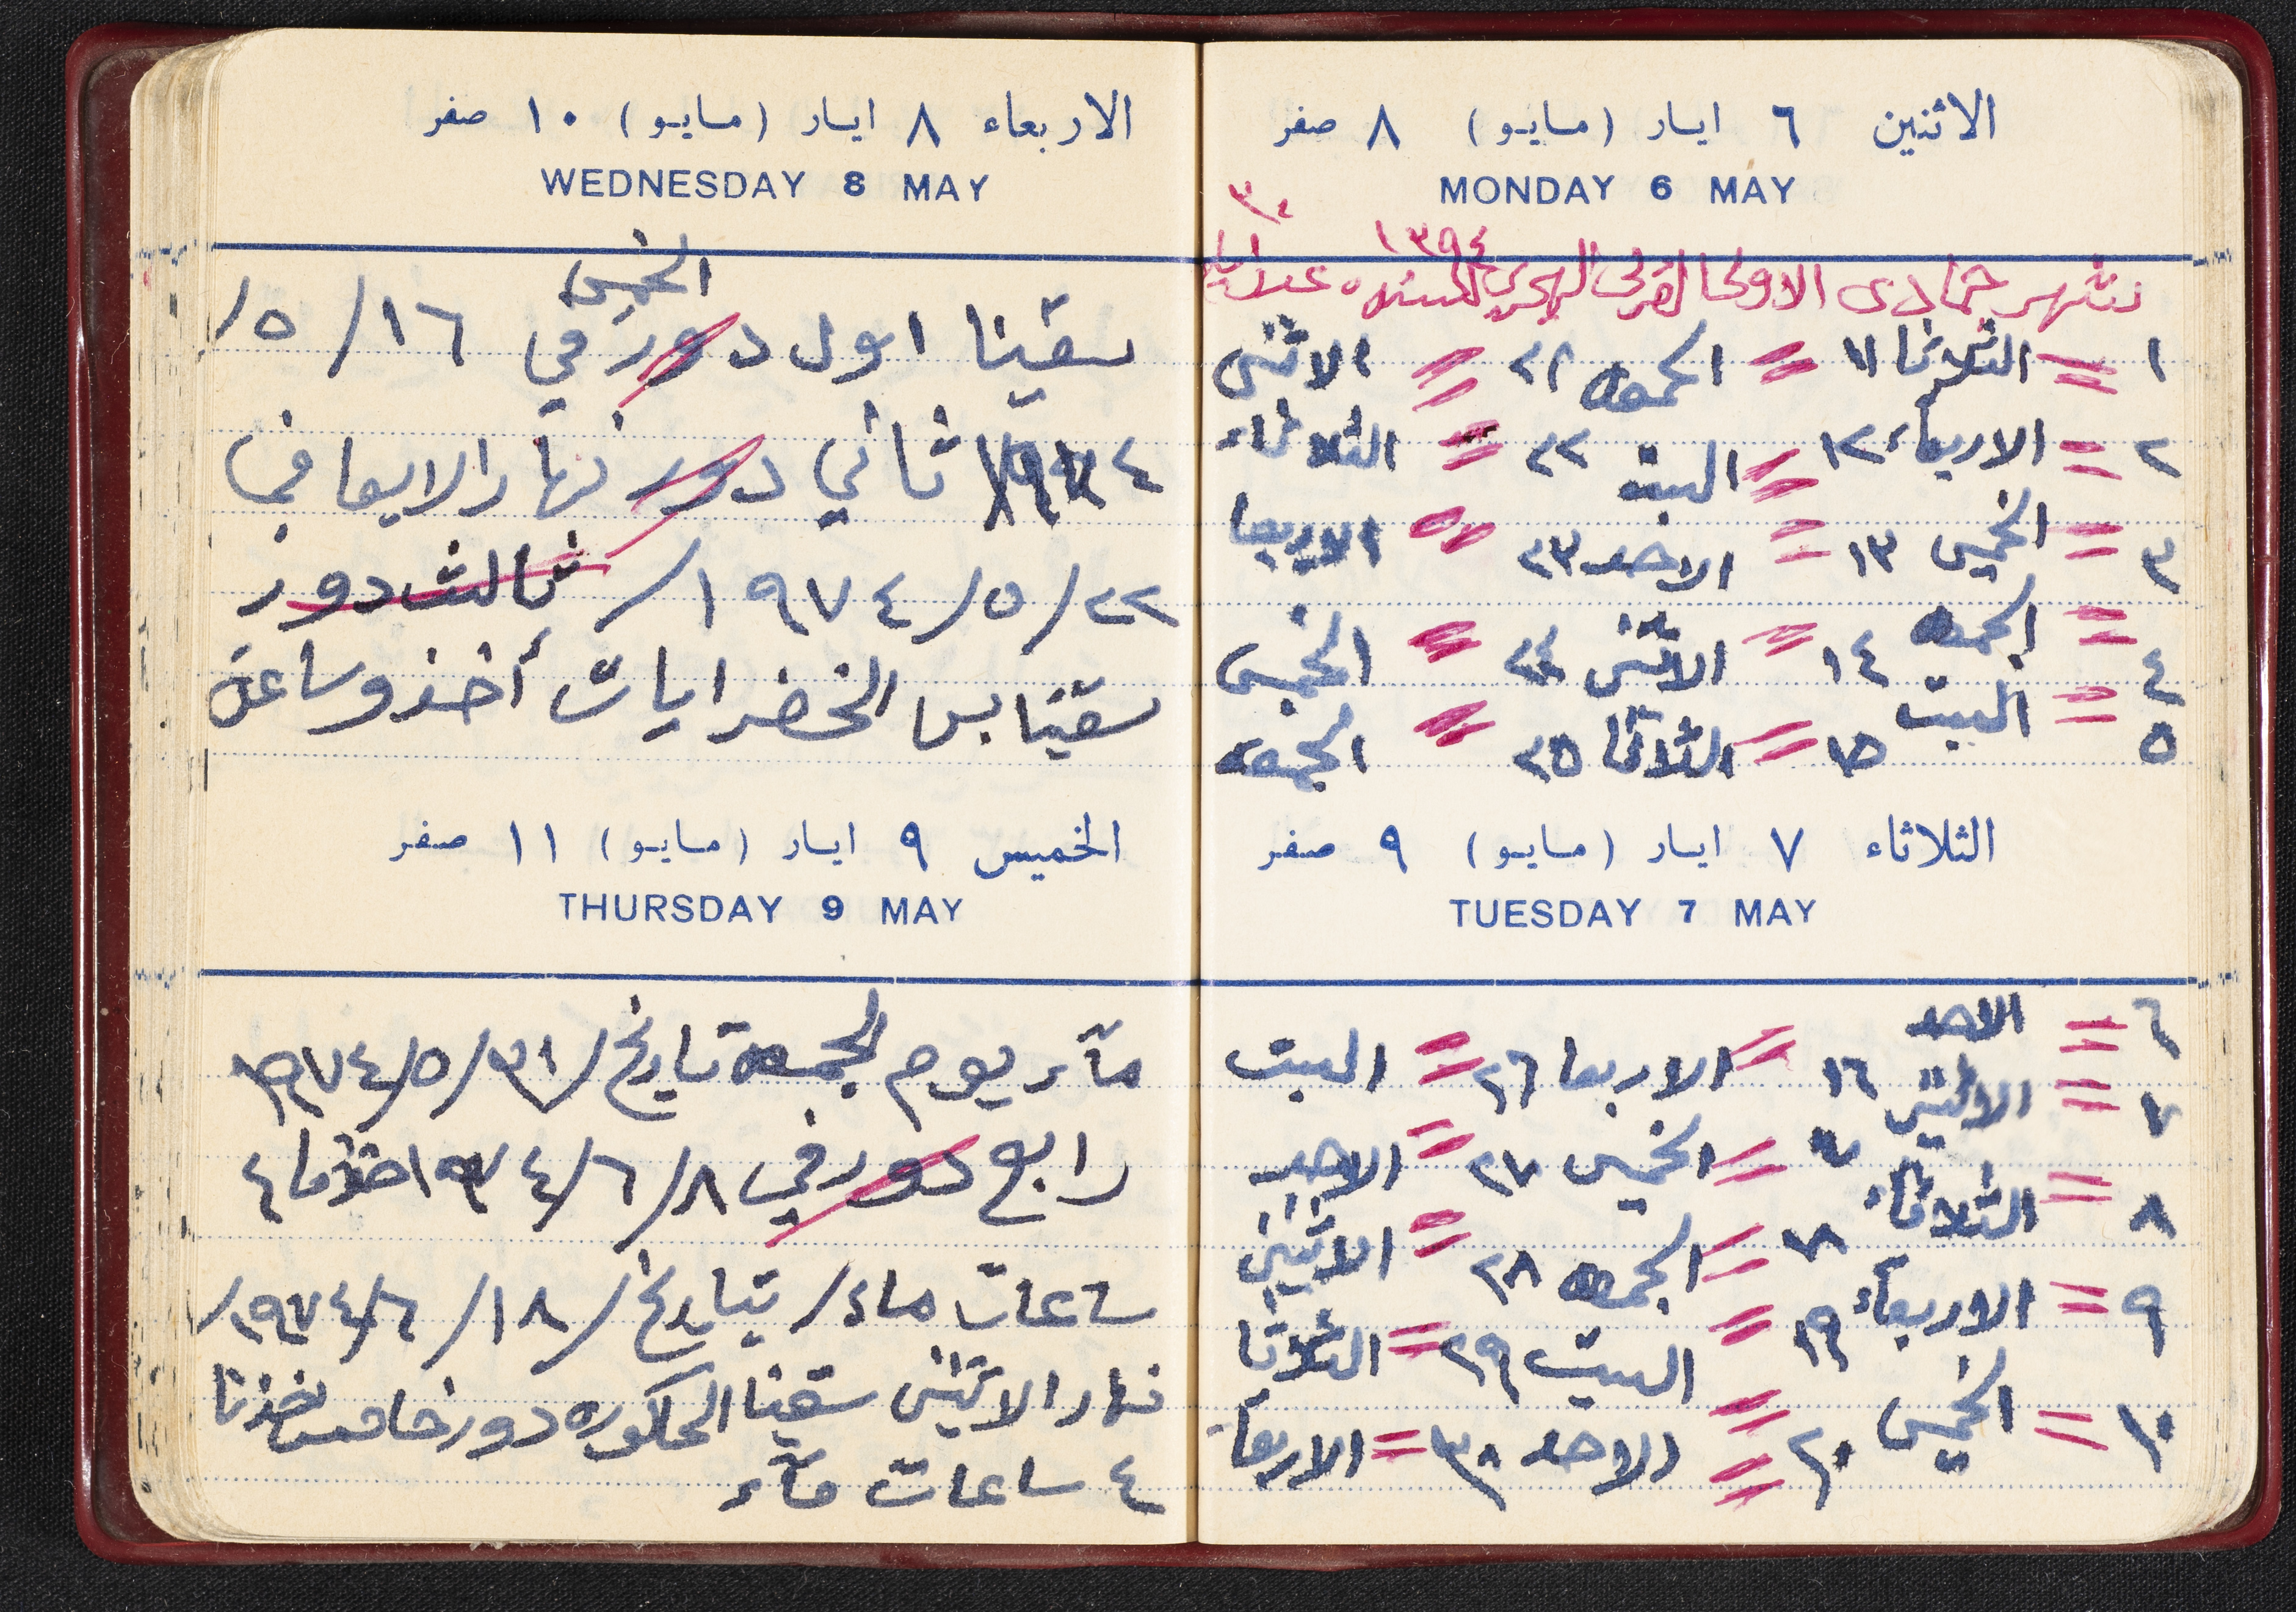 الاثنين ٦ ايار (مايو) ٨ صفر
MONDAY 6 MAY
٣٠
١٣٩٤
شهر جمادى الاولى القمرى الهجرى لسنة عدد ايام
١ = الثلاثا ١١ = الجمعه ٢١ = الاثنى
٢ = الاربعاء ١٢ = السبت ٢٢ = الثلاثاء
٣ = الخميس ١٣ = الاحد ٢٣ = الاربعا
٤ = الجمعه ١٤ = الاثنى ٢٤ = الخميس
٥ = السبت ١٥ = الثلاثا ٢٥ = الجمعه
الثلاثاء ٧ ايار (مايو) ٩ صفر
TUESDAY 7 MAY
٦ = الاحد ١٦ = الاربعا ٢٦ = السبت
٧ = الاثنين ١٧ = الخميس ٢٧ = الاحد
٨ = الثلاثاء ١٨ = الجمعه ٢٨ = الاثنين
٩ = الاربعاء ١٩ = السبت ٢٩ = الثلاثا
١٠ = الخميس ٢٠ = الاحد ٣٠ = الاربعا
الاربعاء ٨ ايار (مايو) ١٠ صفر
WEDNESDAY 8 MAY
الخميس
سقينا اول دور في ١٦/٥/
١٩٧٤ ثاني دور نهار الايعا في
٢٢/٥/١٩٧٤/ ثالث دور
سقينا بس الخضرايات أخذو ساعة
الخميس ٩ ايار (مايو) ١١ صفر
THURSDAY 9 MAY
مآء يوم الجمعه تاريخ/٣١/٥/١٩٧٤
رابع دور في ٨/٦/١٩٧٤ اخذما ٤
ساعات ماء/ بتاريخ/١٨/٦/١٩٧٤/
نهار الاثنى سقينا الحكوره دور خامس اخذنا
٤ ساعات مآء